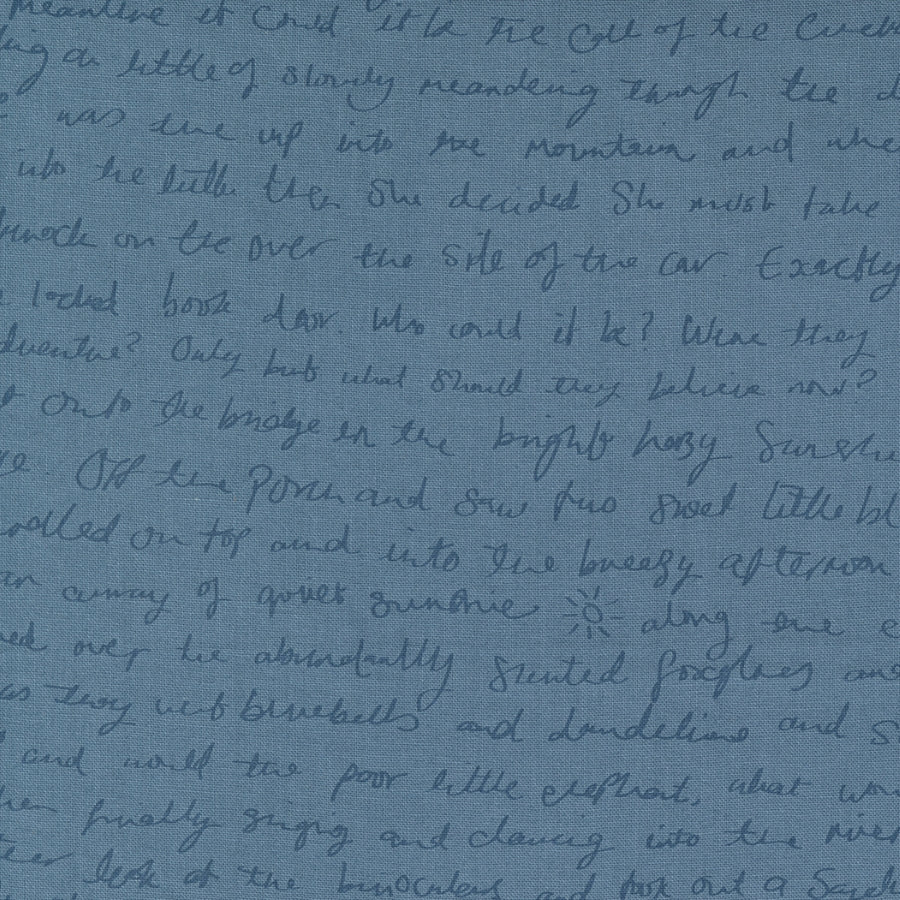 meantime it could it be the call of the
a little of slowly meandering through the
was the up into the mountain and
into the little the she decided She must take
knock on the over the side of the car. Exactly
locked book door. Who could it be? Were they
Only but what should they believe now?
onto the bridge in the bright hazy
Off the Porch and saw two sweet little bl
rolled on top and into the breezy afternoon
away of quiet sunshine along the e
over the abundantly scented foxgloves and
as they bluebells and dandelions and s
and would the poor little elephant, what
finally singing and dancing into the river
look at the binoculars and took out a